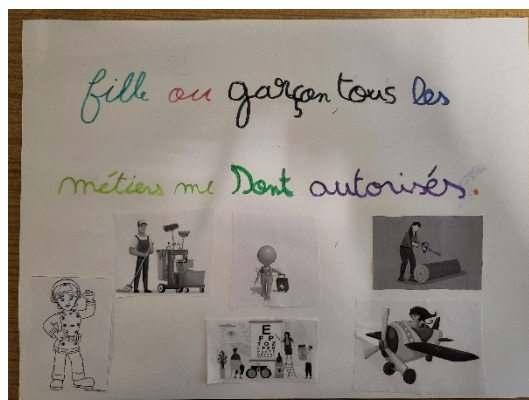 fille ou garçon tous les
métiers me Sont autorisés.
E
F P
T O Z